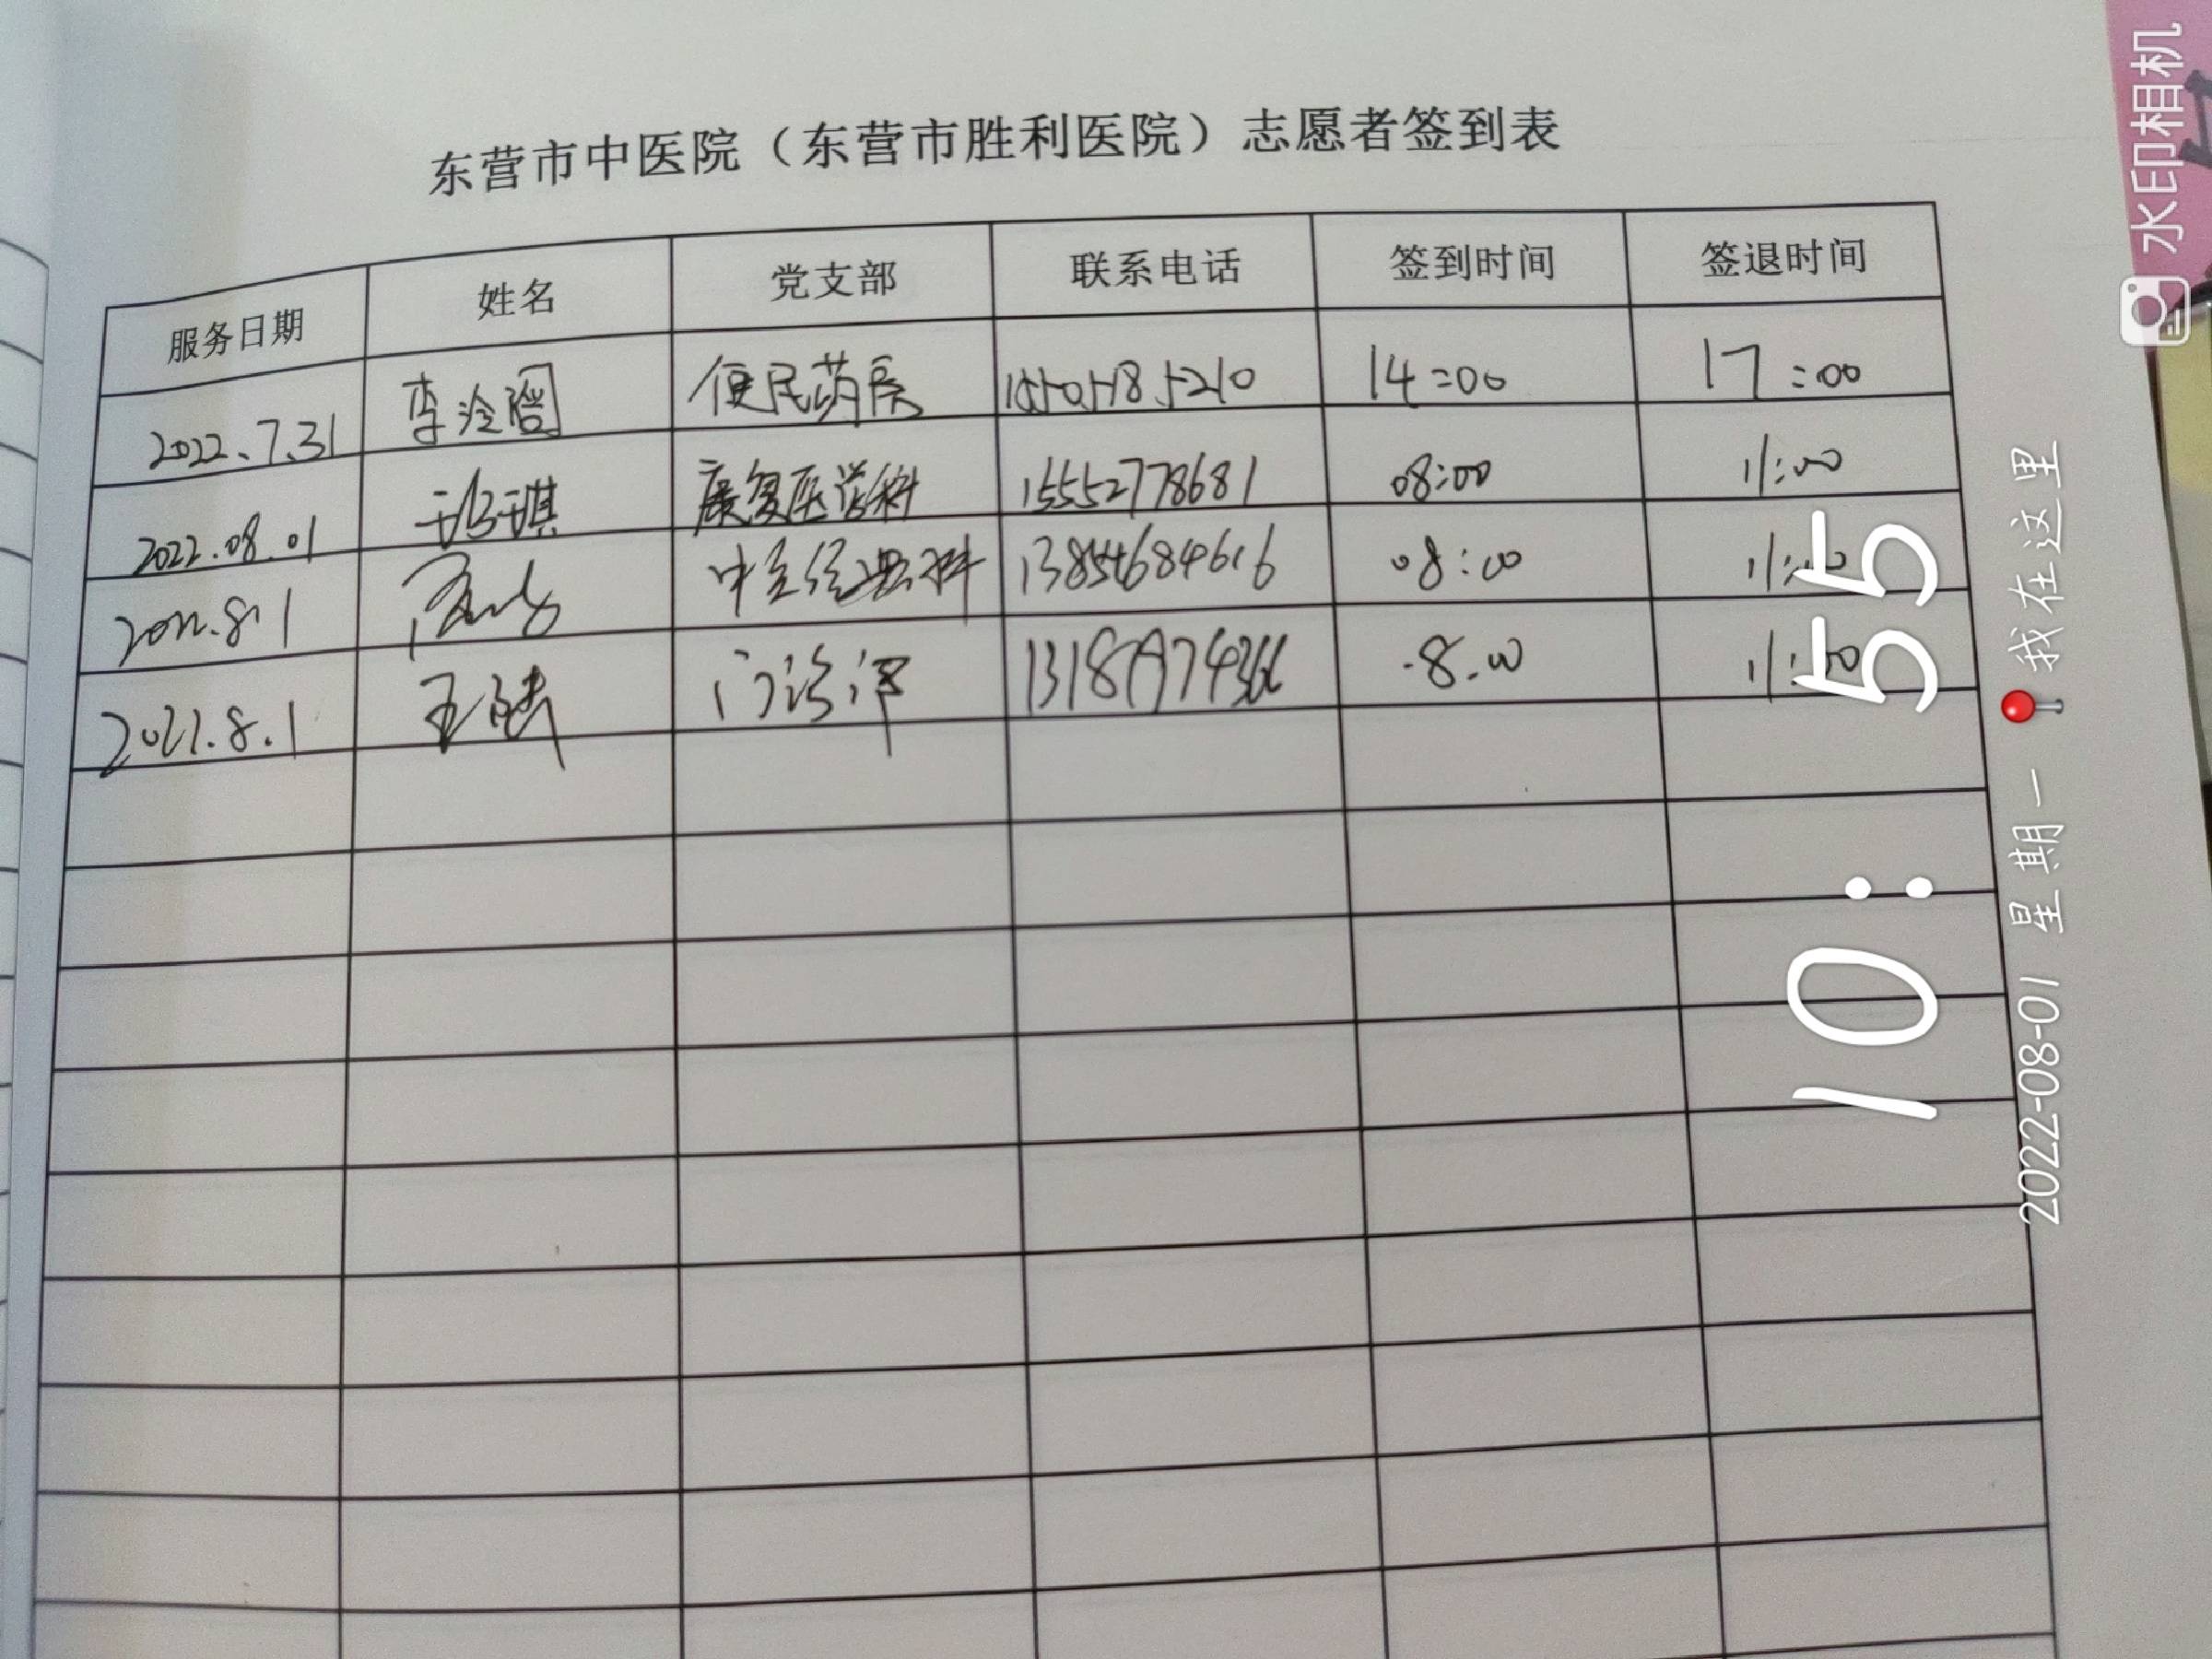 东营市中医院（东营市胜利医院）志愿者签到表
服务日期 姓名 党支部 联系电话 签到时间 签退时间
2022.7.31 李 便民药房 15505185210 14:00 17:00
2022.08.01 琪 康复医学科 15552778681 08:00 11:00
2022.8.1 中医经典科 13854684616 08:00 11:00
2022.8.1 王 门诊 8.00 11:00
水印相机
10:55
2022-08-01 星期一 我在这里